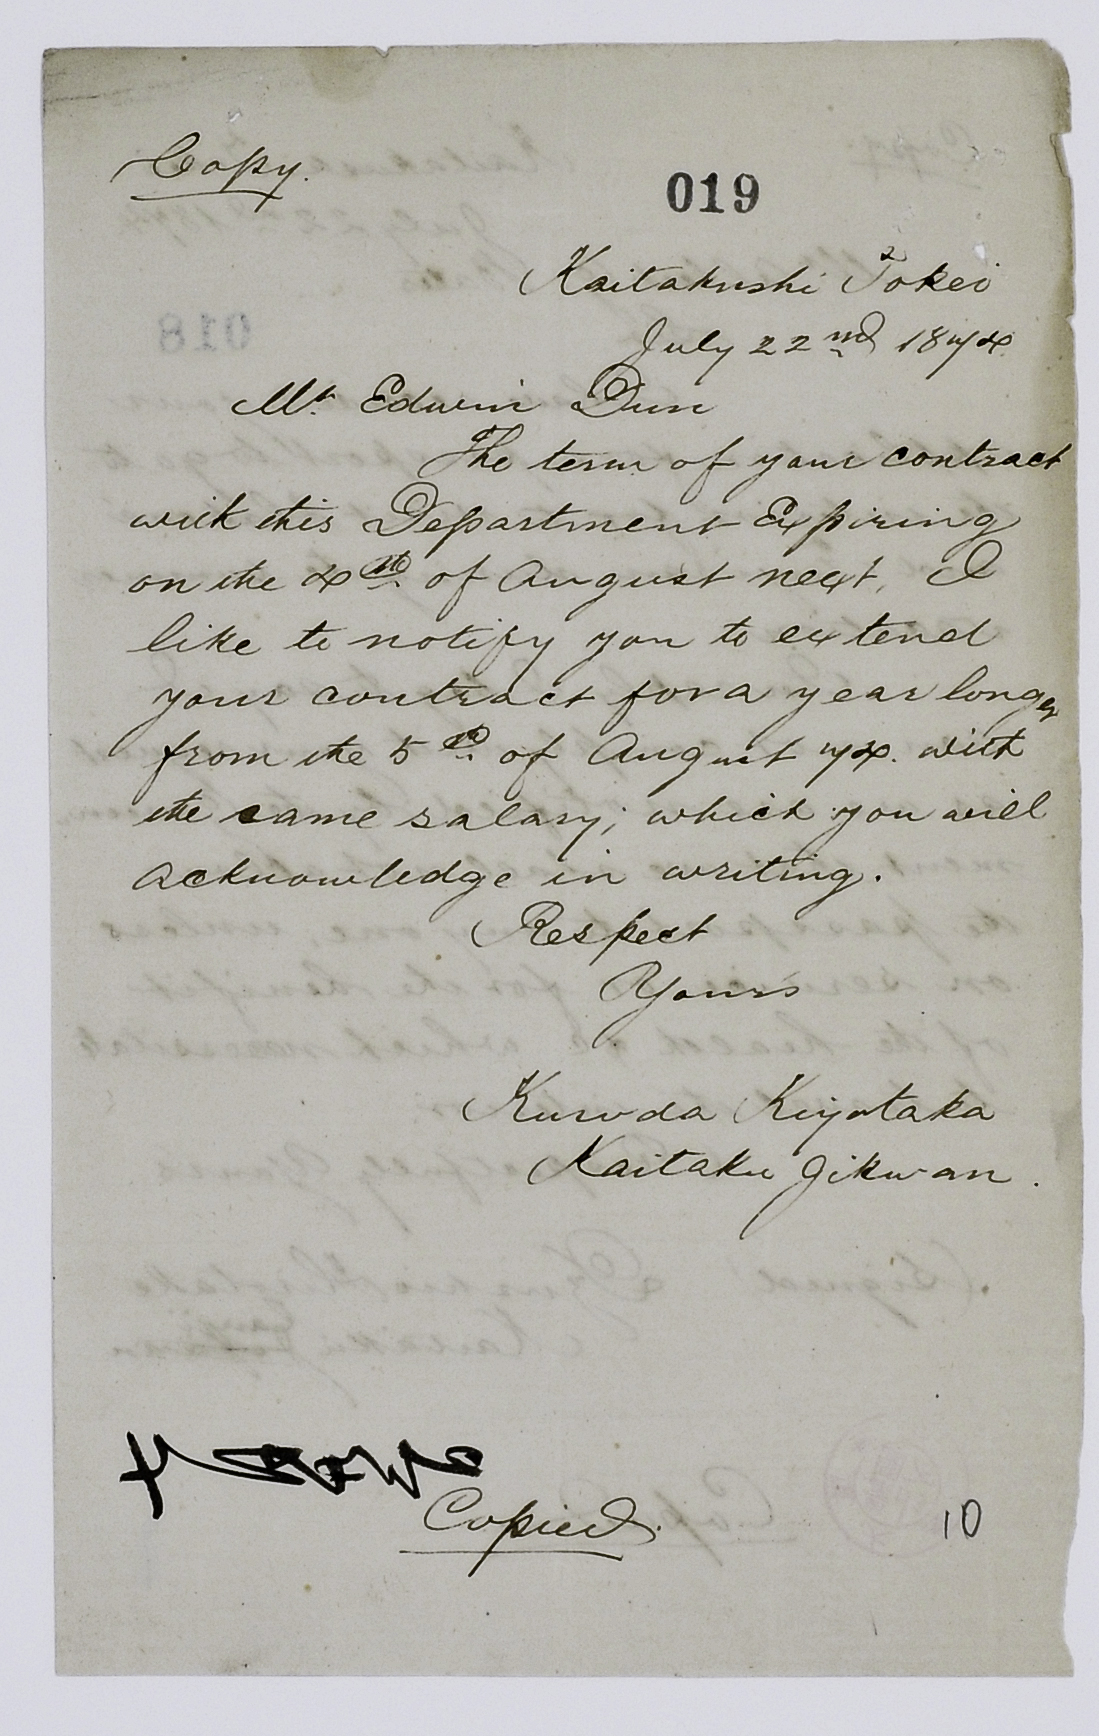 Copy.
019
Kaitakushi Tokei
July 22nd 1874
Mr Edwin Dun
The term of your contract
with this Department Expiring
on the 4th of August next, I
like to notify you to extend
your contract for a year longer
from the 5th of August 74. with
the same salary; which you will
acknowledge in writing.
Respect
Yours
Kuroda Kiyotaka
Kaitaku Jikwan.
Copied.
10